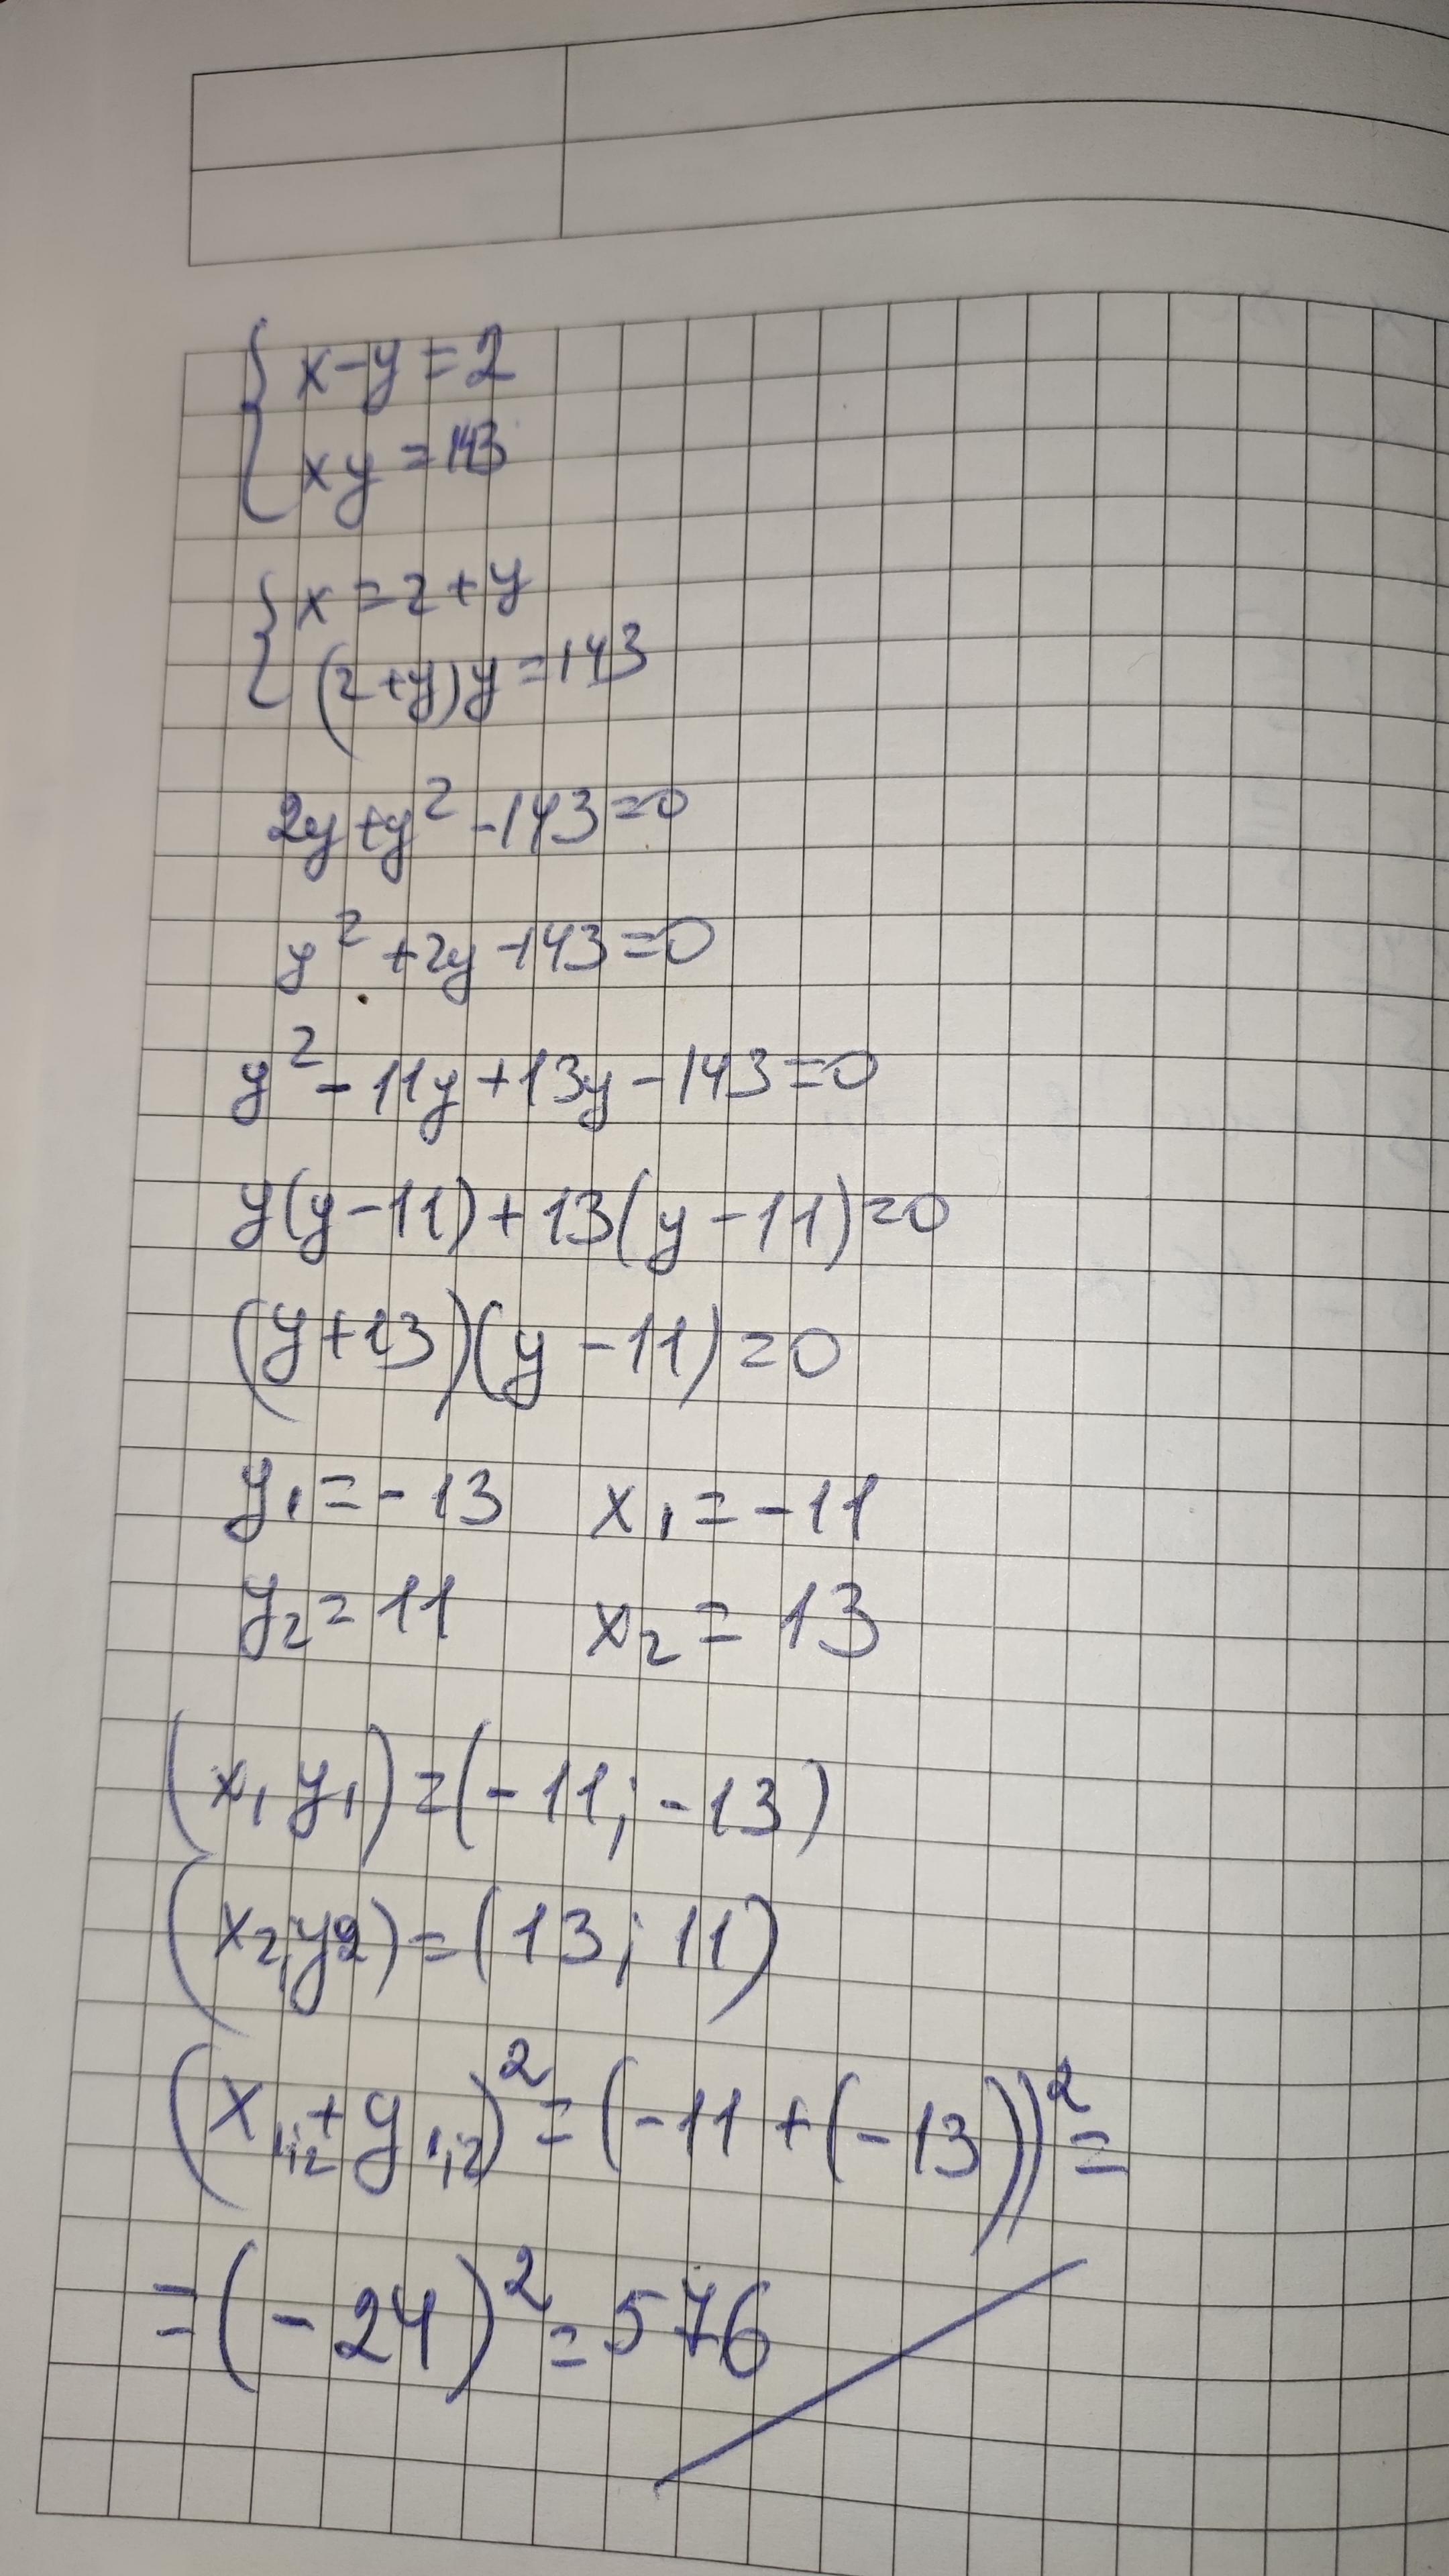 { x-y=2
xy=143
{ x=2+y
(2+y)y=143
2y+y²-143=0
y²+2y-143=0
y²-11y+13y-143=0
y(y-11)+13(y-11)=0
(y+13)(y-11)=0
y₁=-13 x₁=-11
y₂=11 x₂=13
(x₁ y₁)=(-11;-13)
(x₂,y₂)=(13;11)
(x₁,₂+y₁,₂)²=(-11+(-13))²=
=(-24)²=576